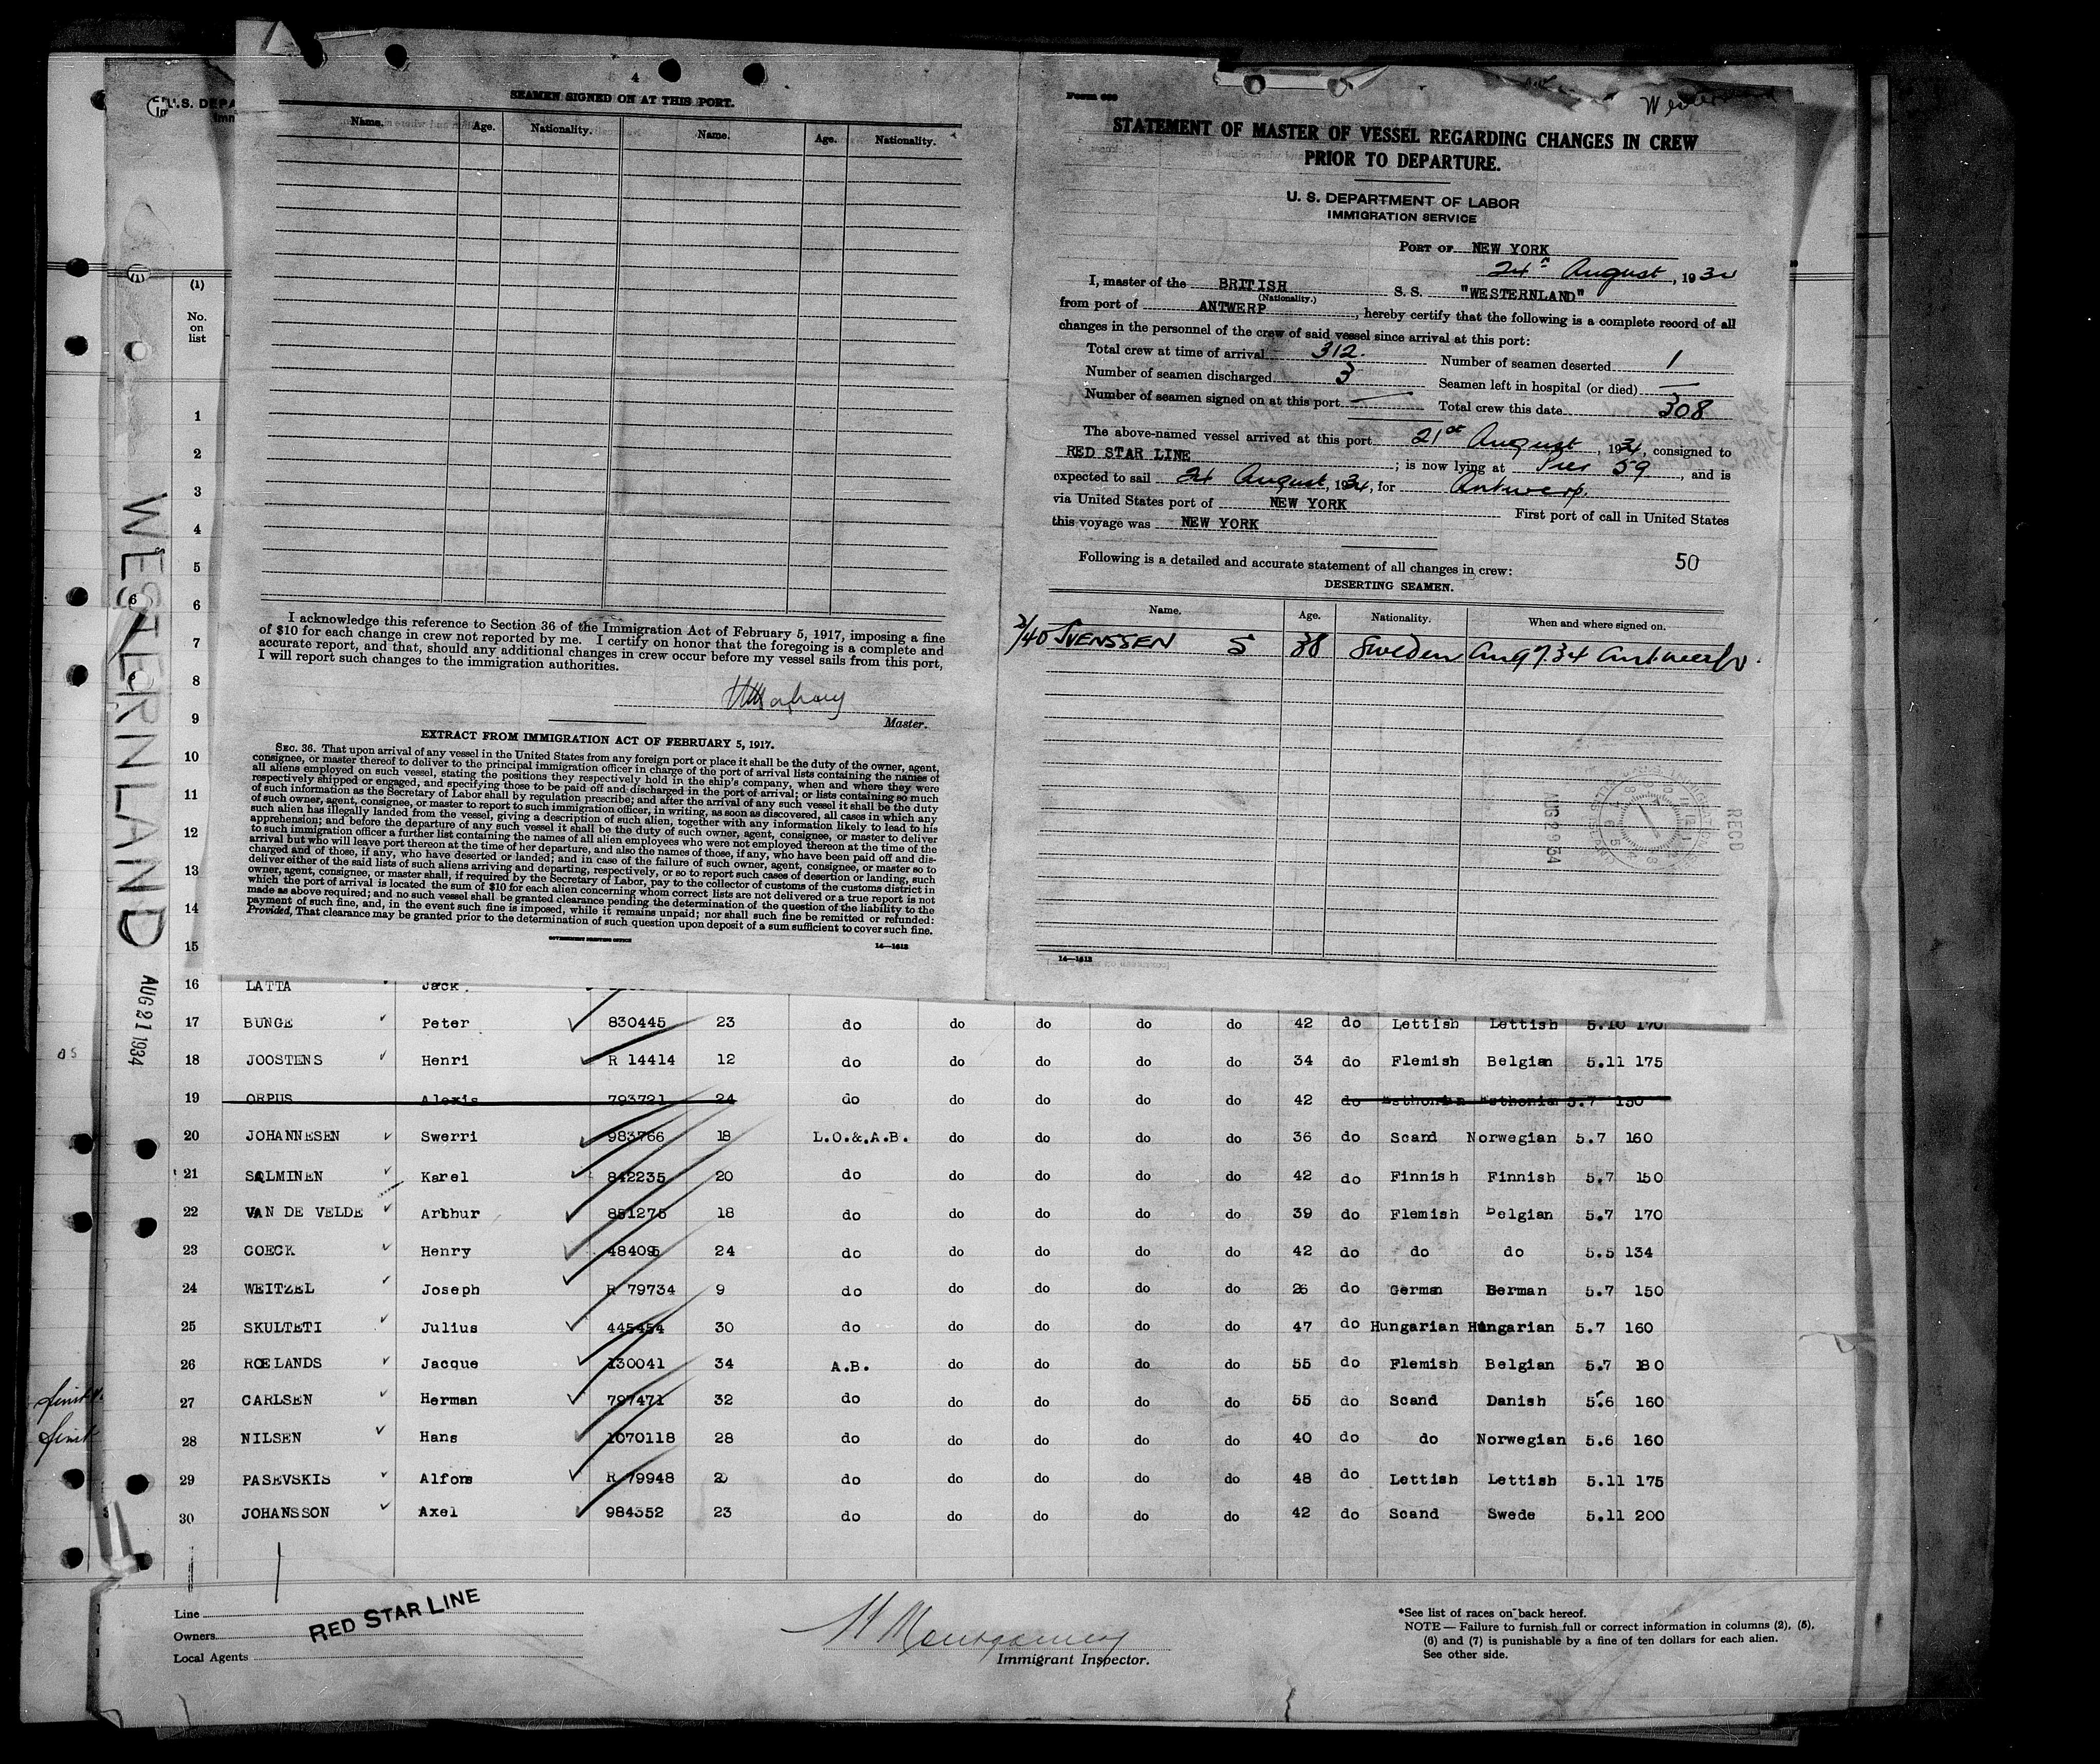 4
SEAMEN SIGNED ON AT THIS PORT.
Name. Age. Nationality. Name. Age. Nationality.
I acknowledge this reference to Section 36 of the Immigration Act of February 5, 1917, imposing a fine
of $10 for each change in crew not reported by me. I certify on honor that the foregoing is a complete and
accurate report, and that, should any additional changes in crew occur before my vessel sails from this port,
I will report such changes to the immigration authorities.
Master.
EXTRACT FROM IMMIGRATION ACT OF FEBRUARY 5, 1917.
SEC. 36. That upon arrival of any vessel in the United States from any foreign port or place it shall be the duty of the owner, agent,
consignee, or master thereof to deliver to the principal immigration officer in charge of the port of arrival lists containing the names of
all aliens employed on such vessel, stating the positions they respectively hold in the ship's company, when and where they were
respectively shipped or engaged, and specifying those to be paid off and discharged in the port of arrival; or lists containing so much
of such information as the Secretary of Labor shall by regulation prescribe; and after the arrival of any such vessel it shall be the duty
of such owner, agent, consignee, or master to report to such immigration officer, in writing, as soon as discovered, all cases in which any
such alien has illegally landed from the vessel, giving a description of such alien, together with any information likely to lead to his
apprehension; and before the departure of any such vessel it shall be the duty of such owner, agent, consignee, or master to deliver
to such immigration officer a further list containing the names of all alien employees who were not employed thereon at the time of the
arrival but who will leave port thereon at the time of her departure, and also the names of those, if any, who have been paid off and dis-
charged and of those, if any, who have deserted or landed; and in case of the failure of such owner, agent, consignee, or master so to
deliver either of the said lists of such aliens arriving and departing, respectively, or so to report such cases of desertion or landing, such
owner, agent, consignee, or master shall, if required by the Secretary of Labor, pay to the collector of customs of the customs district in
which the port of arrival is located the sum of $10 for each alien concerning whom correct lists are not delivered or a true report is not
made as above required; and no such vessel shall be granted clearance pending the determination of the question of the liability to the
payment of such fine, and, in the event such fine is imposed, while it remains unpaid; nor shall such fine be remitted or refunded:
Provided, That clearance may be granted prior to the determination of such question upon deposit of a sum sufficient to cover such fine.
GOVERNMENT PRINTING OFFICE 14—1613
Form 680
Westernland
STATEMENT OF MASTER OF VESSEL REGARDING CHANGES IN CREW
PRIOR TO DEPARTURE.
U. S. DEPARTMENT OF LABOR
IMMIGRATION SERVICE
PORT OF NEW YORK
24th August, 1934
I, master of the BRITISH S. S. "WESTERNLAND"
(Nationality.)
from port of ANTWERP, hereby certify that the following is a complete record of all
changes in the personnel of the crew of said vessel since arrival at this port:
Total crew at time of arrival 312. Number of seamen deserted 1
Number of seamen discharged 3 Seamen left in hospital (or died) —
Number of seamen signed on at this port — Total crew this date 308
The above-named vessel arrived at this port 21st August, 1934, consigned to
RED STAR LINE; is now lying at Pier 59, and is
expected to sail 24 August, 1934, for Antwerp.
via United States port of NEW YORK First port of call in United States
this voyage was NEW YORK
50
Following is a detailed and accurate statement of all changes in crew:
DESERTING SEAMEN.
Name. Age. Nationality. When and where signed on.
3/40 SVENSSEN S 38 Sweden Aug 7 34 Antwerp.
REC'D
AUG 29 1934
14—1613
U.S. DEPA
(1)
No.
on
list
1
2
3
4
5
6
7
8
9
10
11
12
13
14
15
WESTERNLAND
AUG 21 1934
16 LATTA Jack
17 BUNGE Peter 830445 23 do do do do do 42 do Lettish Lettish 5.10 170
18 JOOSTENS Henri R 14414 12 do do do do do 34 do Flemish Belgian 5.11 175
19 ORPUS Alexis 793721 24 do do do do do 42 do Esthonian Esthonian 5.7 150
20 JOHANNESEN Swerri 983766 18 L.O.&.A.B. do do do do 36 do Scand Norwegian 5.7 160
21 SALMINEN Karel 842235 20 do do do do do 42 do Finnish Finnish 5.7 150
22 VAN DE VELDE Arthur 851275 18 do do do do do 39 do Flemish Belgian 5.7 170
23 COECK Henry 48409 24 do do do do do 42 do do do 5.5 134
24 WEITZEL Joseph R 79734 9 do do do do do 26 do German German 5.7 150
25 SKULTETI Julius 445454 30 do do do do do 47 do Hungarian Hungarian 5.7 160
26 ROELANDS Jacque 130041 34 A.B. do do do do 55 do Flemish Belgian 5.7 180
27 CARLSEN Herman 797471 32 do do do do do 55 do Scand Danish 5.6 160
28 NILSEN Hans 1070118 28 do do do do do 40 do do Norwegian 5.6 160
29 PASEVSKIS Alfons R 79948 20 do do do do do 48 do Lettish Lettish 5.11 175
30 JOHANSSON Axel 984352 23 do do do do do 42 do Scand Swede 5.11 200
Line
Owners RED STAR LINE
Local Agents
H Montgomery
Immigrant Inspector.
*See list of races on back hereof.
NOTE — Failure to furnish full or correct information in columns (2), (5),
(6) and (7) is punishable by a fine of ten dollars for each alien.
See other side.